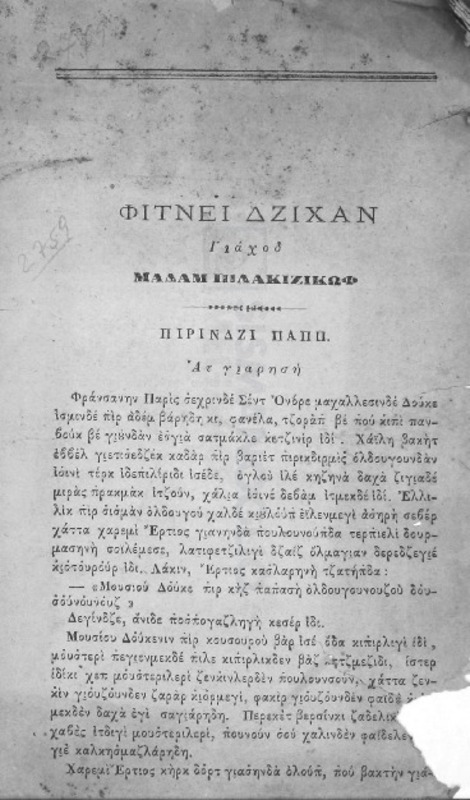 2759
ΦΙΤΝΕΙ ΔΖΙΧΑΝ
Γιάχοδ
ΜΑΔΑΜ
ΠΙΡΙΝΔΖΙ ΠΑΠΠ.
Ἀτ γιαρησή
Φράνσανην Παρὶς σεχρινδὲ Σὲντ Ὀνόρε μαχαλλεσινδὲ Δούκε
ἰσμινδὲ πὶρ ἀδὲμ βάρηδη κι, φανέλα, τζορὰπ βὲ ποὺ κιπὶ παν-
βοὺκ βὲ γιουνδὰν ἐσγιὰ σατμάκλε κετζινὶρ ἰδί. Χαϊλη βακὴτ
ἐββὲλ γιετισὲδζεκ καδὰρ πὶρ βαριὲτ πιρικδιρμὶς ὀλδουγουνδὰν
ἰσινὶ τέρκ ἰδεπιλίριδι ἰσέδε, ὀγλοὺ ἰλὲ κηζηνὰ δαχὰ ζιγιαδὲ
μιρὰς πρακμὰκ ἰτζοὺν, χάλια ἰσινὲ δεβὰμ ἰτμεκδὲ ἰδί. Ἐλλι-
λὶκ πὶρ σισμὰν ὀλδουγοὺ χαλδὲ ἐϊλενμεγὶ ἀσηρὴ σεβὲρ
χάττα χαρεμὶ Ἔρτιος γιανηνδὰ πουλουνουπδα τερπιελὶ δουρ-
μασηνὴ σοϊλέμεσε, λατιφετζιλιγὶ δζαῒζ ὀλμαγιὰν δερεδζεγιὲ
κιοτουροὺρ ἰδι. Λάκιν, Ἔρτιος κασλαρηνὴ τζατήπδα:
— «Μουσιοὺ Δοὺκε πὶρ κὴζ παπασὴ ὀλδουγουνουζοὺ δου-
σουνουνουζ»
Δεγίνδζε, ἄνιδε ποσπογαζληγὴ κεσὲρ ἰδι.
Μουσίου Δούκενιν πὶρ κουσουροὺ βὰρ ἰσὲ ὄδα κιπιρλιγὶ ἰδί,
μούστερὶ πεγιενμεκδὲ πιλε κιπιρλικδεν βὰζ ἰστὲρ
ἰδίκι χεπ μούστεριλερὶ ζενκινλερδεν πουλουνσούν, χάττα ζεν-
κὶν γιουζουνδεν ζαρὰρ κιορμεγί, φακὶρ γιουζουνδεν φαϊδὲ
μεκδεν δαχὰ ἐγὶ σαγιάρηδη. Περεκὲτ βερσίνκι
χαβὲς ἰτδιγὶ μουστεριλερί, πουνοὺν σοὺ χαλινδεν
γιὲ καλκησμαζλάρηδη.
Χαρεμὶ Ἔρτιος κὴρκ δὸρτ γιασηνδὰ ὀλούπ, ποὺ βακτὴν γιά-